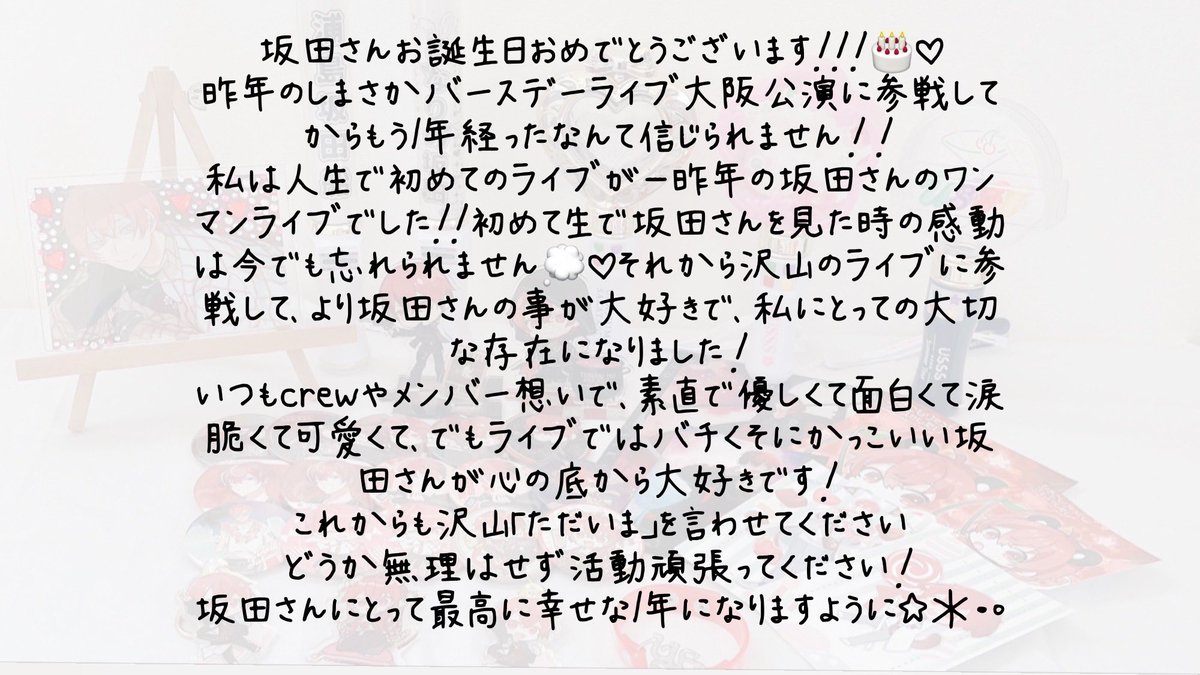 坂田さんお誕生日おめでとうございます!!!🎂♡
昨年のしまさかバースデーライブ大阪公演に参戦して
からもう1年経ったなんて信じられません!!
私は人生で初めてのライブが一昨年の坂田さんのワン
マンライブでした!!初めて生で坂田さんを見た時の感動
は今でも忘れられません💭♡それから沢山のライブに参
戦して、より坂田さんの事が大好きで、私にとっての大切
な存在になりました!
いつもcrewやメンバー想いで、素直で優しくて面白くて涙
脆くて可愛くて、でもライブではバチくそにかっこいい坂
田さんが心の底から大好きです!
これからも沢山「ただいま」を言わせてください
どうか無理はせず活動頑張ってください!
坂田さんにとって最高に幸せな1年になりますように☆*・。